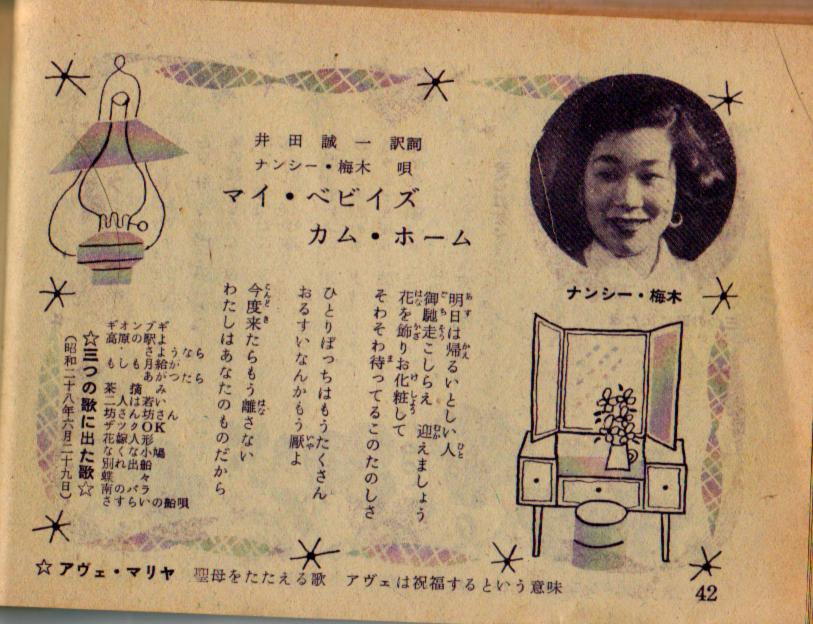 井田誠一 訳詞
ナンシー・梅木 唄
マイ・ベビイズ
カム・ホーム
ナンシー・梅木
明日は帰るいとしい人
御馳走こしらえ 迎えましょう
花を飾りお化粧して
そわそわ待ってるこのたのしさ
ひとりぼっちはもうたくさん
おるすいなんかもう厭よ
今度来たらもう離さない
わたしはあなたのものだから
ギオンブギ
高原の駅よ
さようなら
もしも月給が
あがつたら
茶摘み
二人は若い
坊さん坊さん
ザツクOK
花嫁人形
なくな小鳩
別れ出船
蝶々
南のバラ
さすらいの船唄
☆三つの歌に出た歌☆
(昭和二十八年六月二十九日)
☆ アヴェ・マリヤ 聖母をたたえる歌 アヴェは祝福するという意味
42